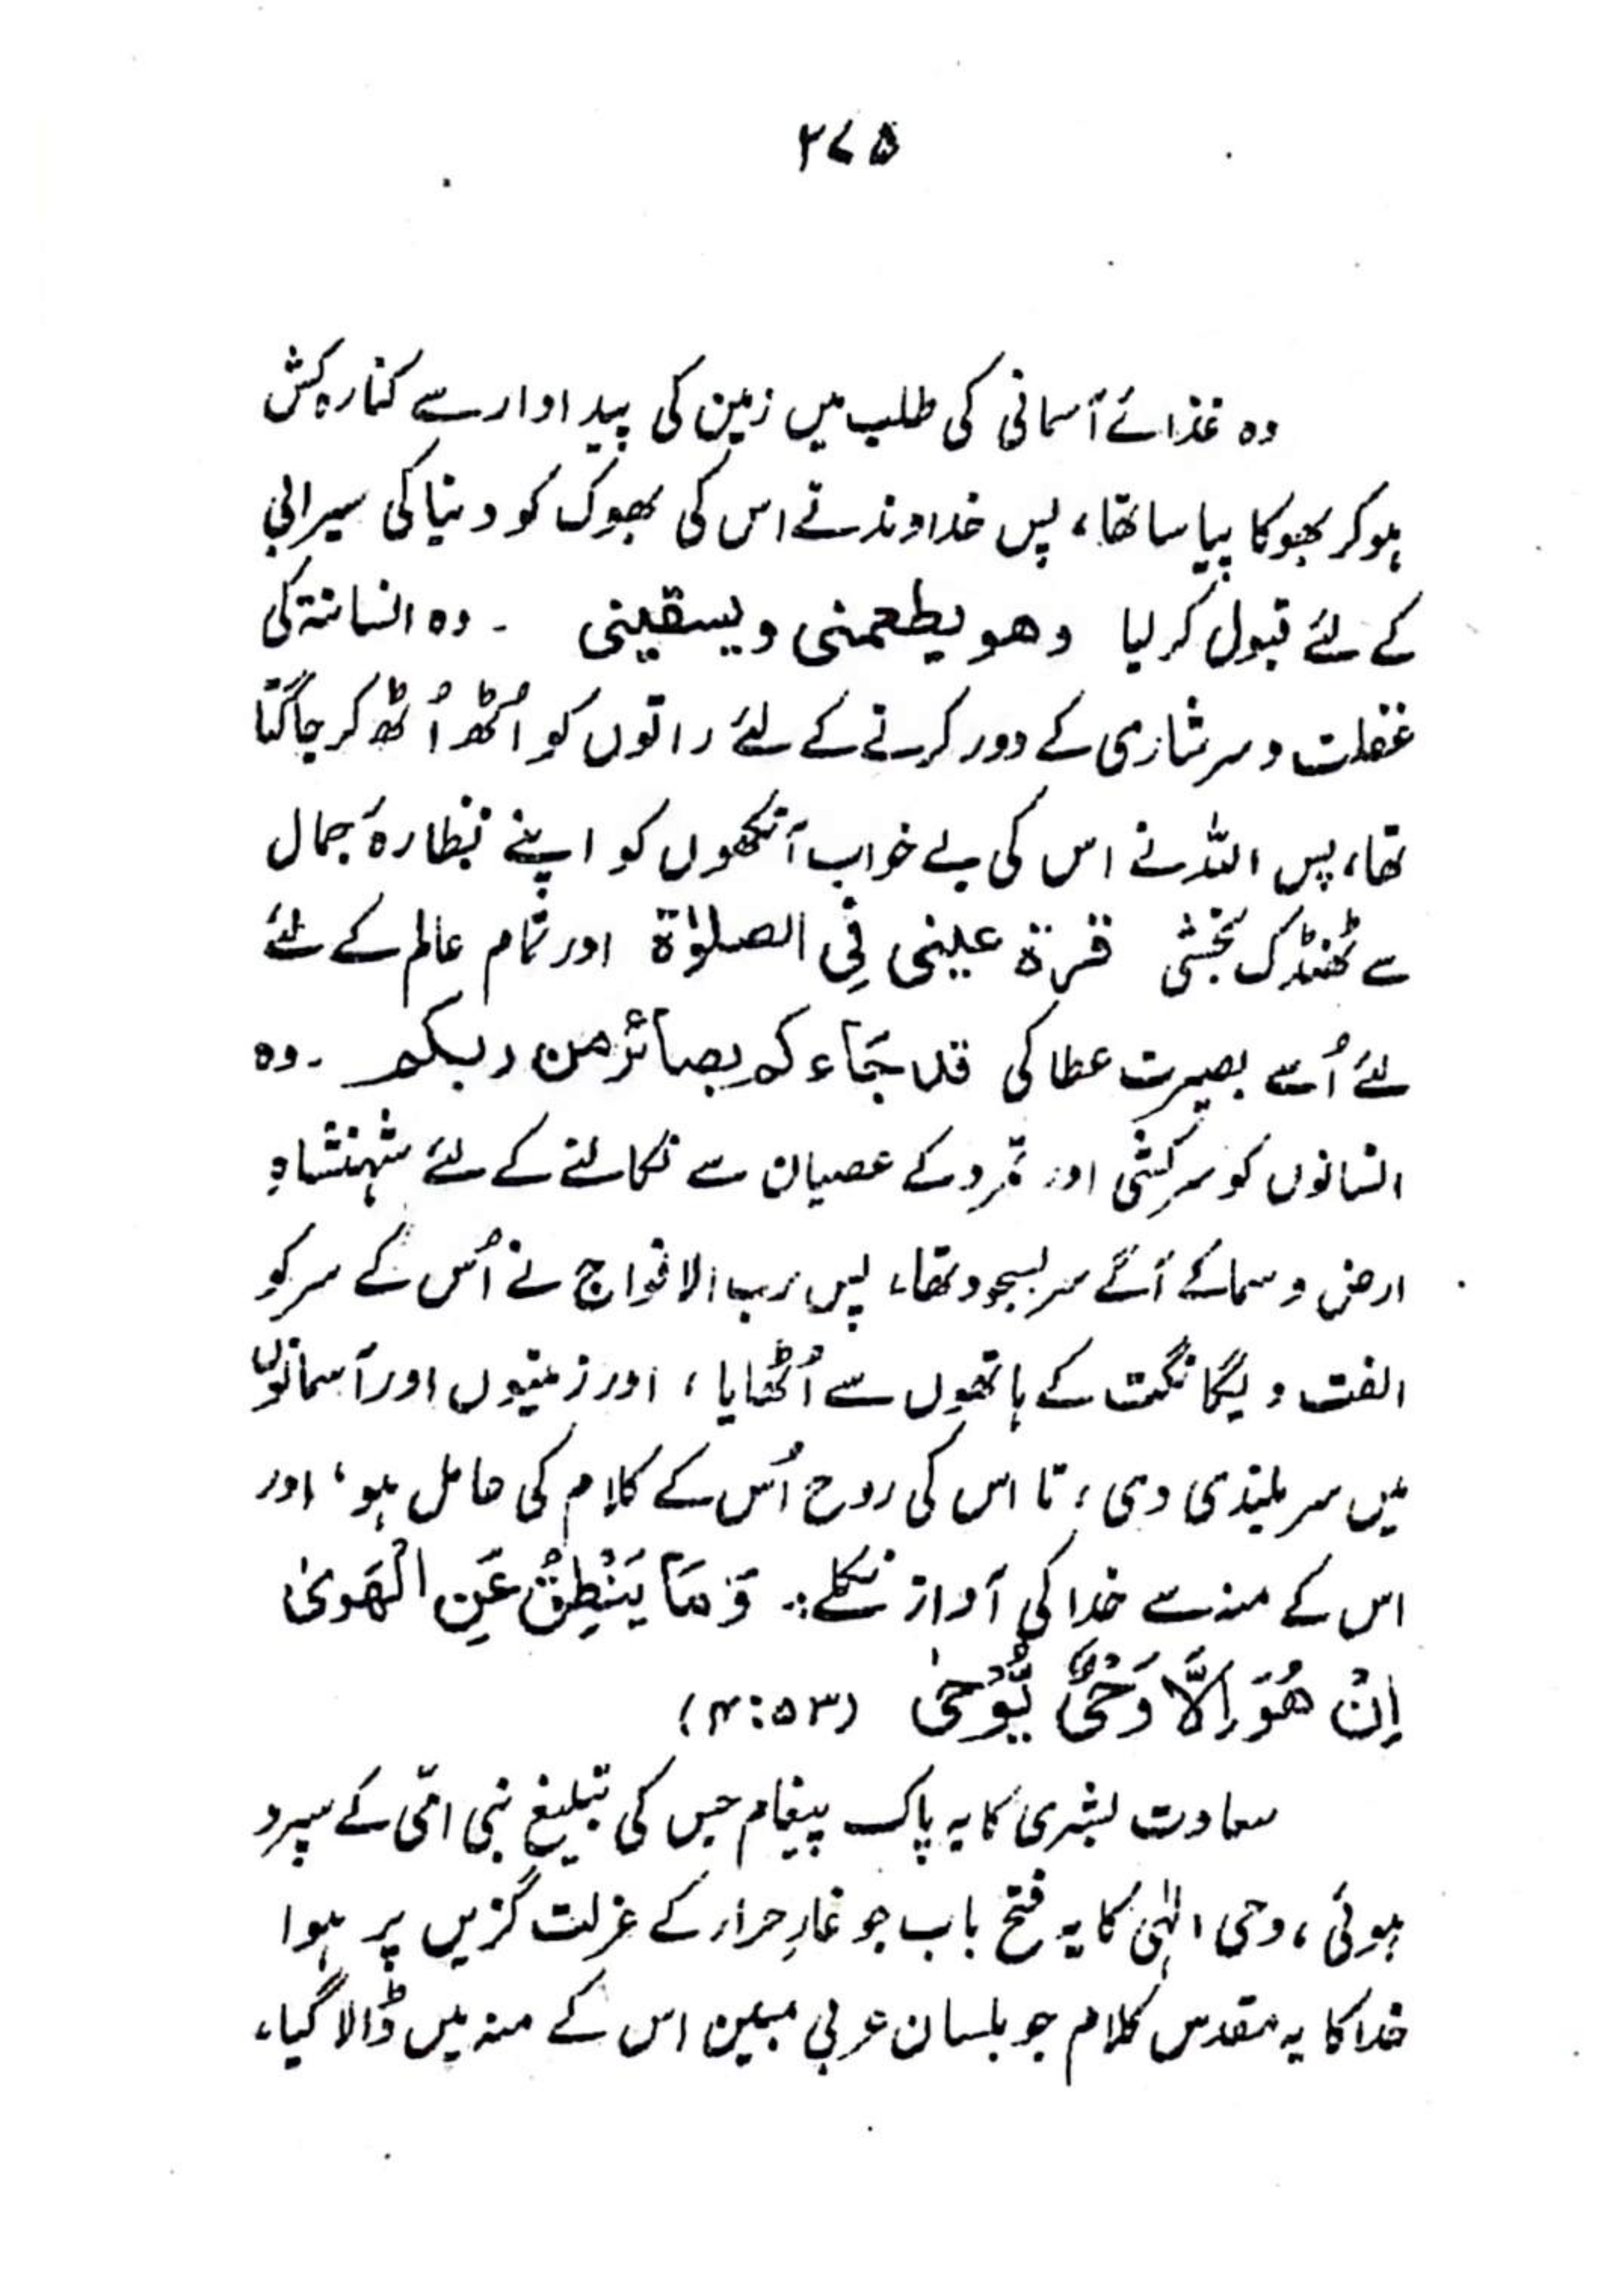 ۲۷۵
وہ غذائے آسمانی کی طلب میں زمین کی پیداوار سے کنارہ کش
ہوکر بھوکا پیاسا تھا، پس خداوند نے اس کی بھوک کو دنیا کی سیرابی
کے لئے قبول کر لیا وهو يطعمنى ويسقينى ۔ وہ انسانیۃ کی
غفلت و سرشاری کے دور کرنے کے لئے راتوں کو اُٹھ اُٹھ کر جاگتا
تھا، پس اللہ نے اس کی بے خواب آنکھوں کو اپنے نظارۂ جمال
سے ٹھنڈک بخشی قرة عينى فِى الصلوٰة اور تمام عالم کے لئے
لئے اُسے بصیرت عطا کی قد جَاءكم بصائرُ من ربكم ۔ وہ
انسانوں کو سرکشی اور تمرد کے عصیان سے نکالنے کے لئے شہنشاہِ
ارض و سما کے آگے سربسجود تھا، پس رب الافواج نے اُس کے سر کو
الفت و یگانگت کے ہاتھوں سے اُٹھایا، اور زمینوں اور آسمانوں
میں سربلندی دی، تا اس کی روح اُس کے کلام کی حامل ہو، اور
اس کے منہ سے خدا کی آواز نکلے:۔ وَمَا يَنْطِقُ عَنِ الْهَوىٰ
اِنْ هُوَ اِلَّا وَحْىٌ يُّوْحىٰ (۵۳:۴)
سعادت بشری کا یہ پاک پیغام جس کی تبلیغ نبی امّی کے سپرد
ہوئی، وحی الٰہی کا یہ فتح باب جو غارِ حراء کے عزلت گزیں پر ہوا
خدا کا یہ مقدس کلام جو بلسان عربی مبین اس کے منہ میں ڈالا گیا،